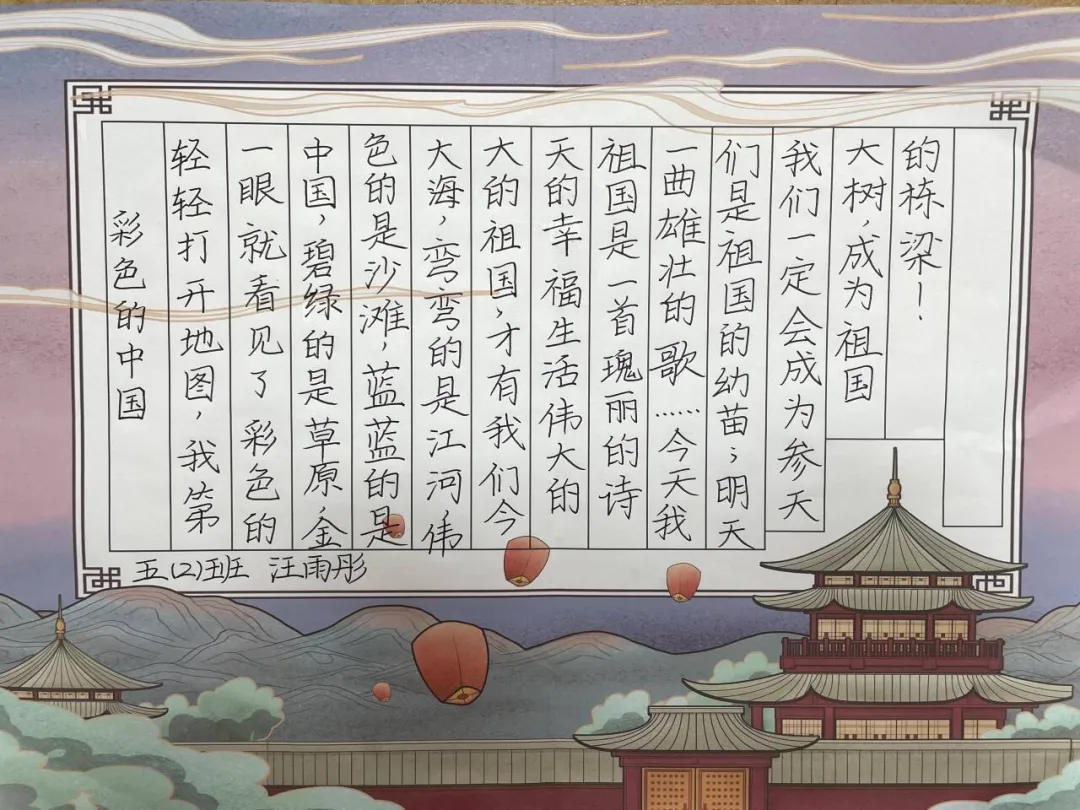 彩色的中国
轻轻打开地图，我第
一眼就看见了彩色的
中国，碧绿的是草原，金
色的是沙滩，蓝蓝的是
大海，弯弯的是江河，伟
大的祖国，才有我们今
天的幸福生活伟大的
祖国是一首瑰丽的诗
一曲雄壮的歌……今天我
们是祖国的幼苗；明天
我们一定会成为参天
大树，成为祖国
的栋梁！
五(2)班 汪雨彤